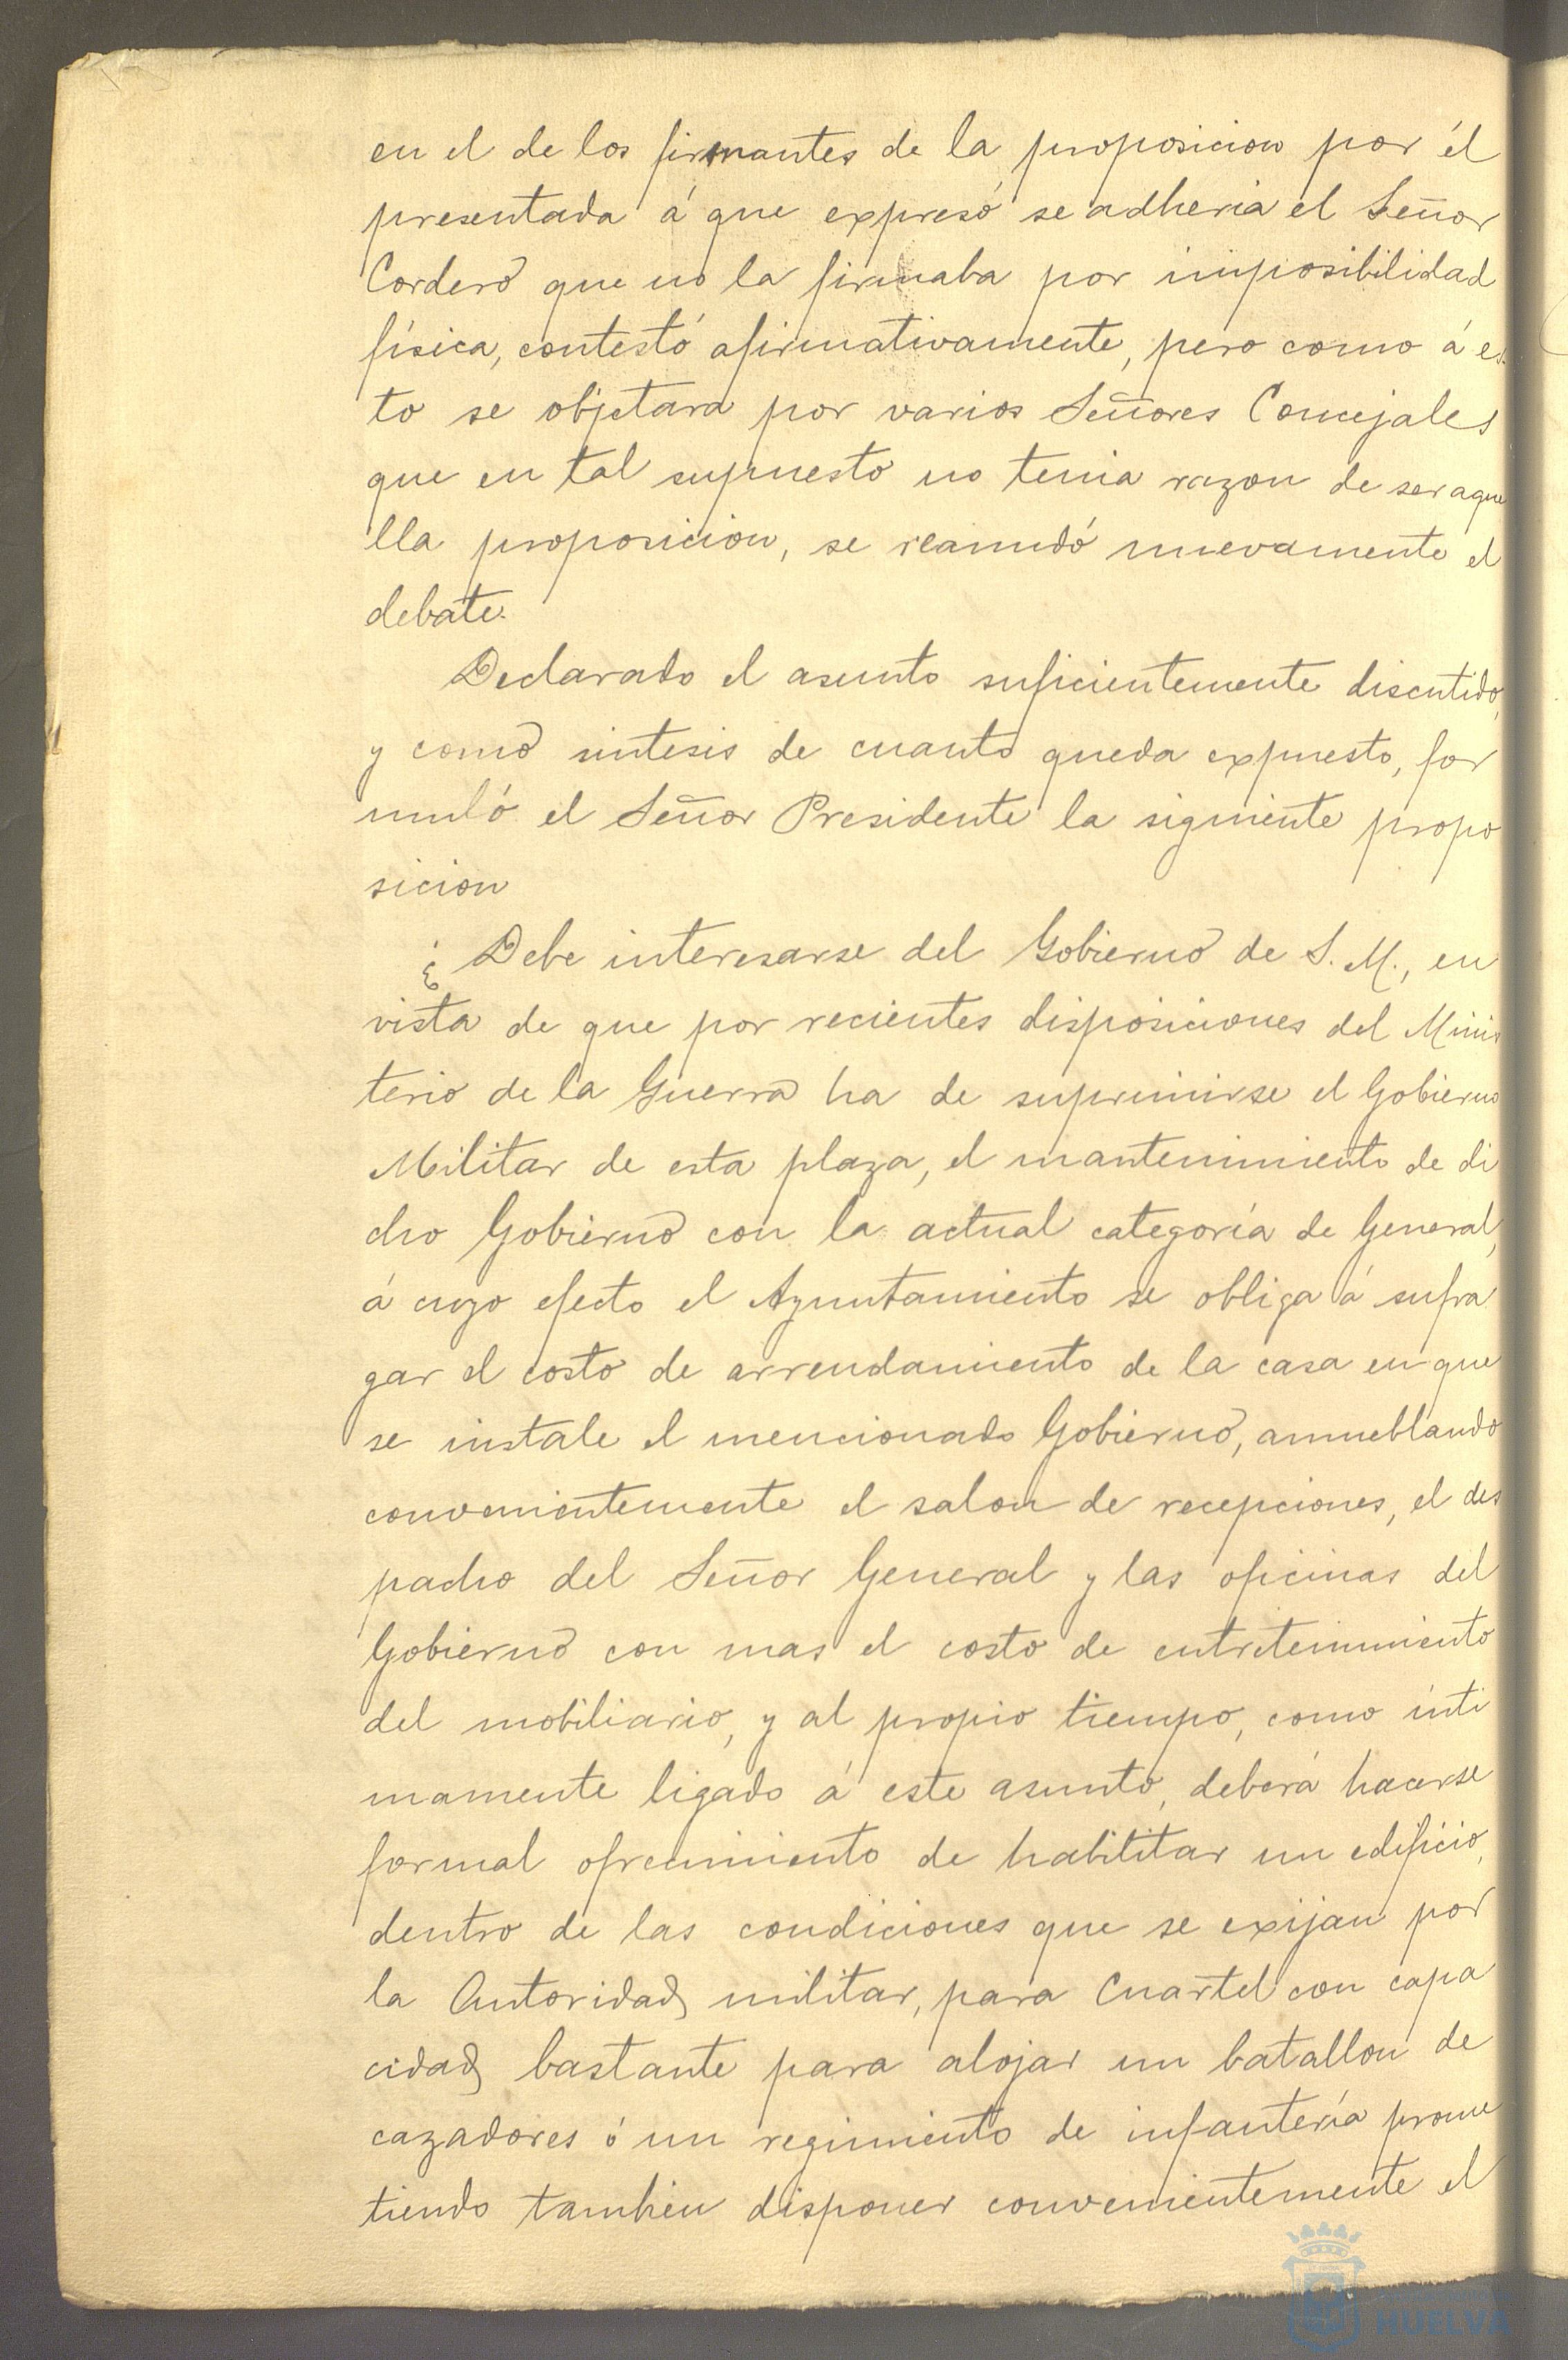 en el de los firmantes de la proposicion por él
presentada á que expresó se adheria el Señor
Cordero que no la firmaba por imposibilidad
física, contestó afirmativamente, pero como á es
to se objetara por varios Señores Concejales
que en tal supuesto no tenia razon de ser aque
lla proposicion, se reanudó nuevamente el
debate.
Declarado el asunto suficientemente discutido,
y como sintesis de cuanto queda expuesto, for
muló el Señor Presidente la siguiente propo
sicion
¿Debe interesarse del Gobierno de S. M., en
vista de que por recientes disposiciones del Minis
terio de la Guerra ha de suprimirse el Gobierno
Militar de esta plaza, el mantenimiento de di
cho Gobierno con la actual categoría de General,
á cuyo efecto el Ayuntamiento se obliga á sufra
gar el costo de arrendamiento de la casa en que
se instale el mencionado Gobierno, amueblando
convenientemente el salon de recepciones, el des
pacho del Señor General y las oficinas del
Gobierno con mas el costo de entretenimiento
del mobiliario, y al propio tiempo, como ínti
mamente ligado á este asunto, deberá hacerse
formal ofrecimiento de habilitar un edificio,
dentro de las condiciones que se exijan por
la Autoridad militar, para Cuartel con capa
cidad bastante para alojar un batallon de
cazadores ó un regimiento de infantería prome
tiendo tambien disponer convenientemente el
HUELVA